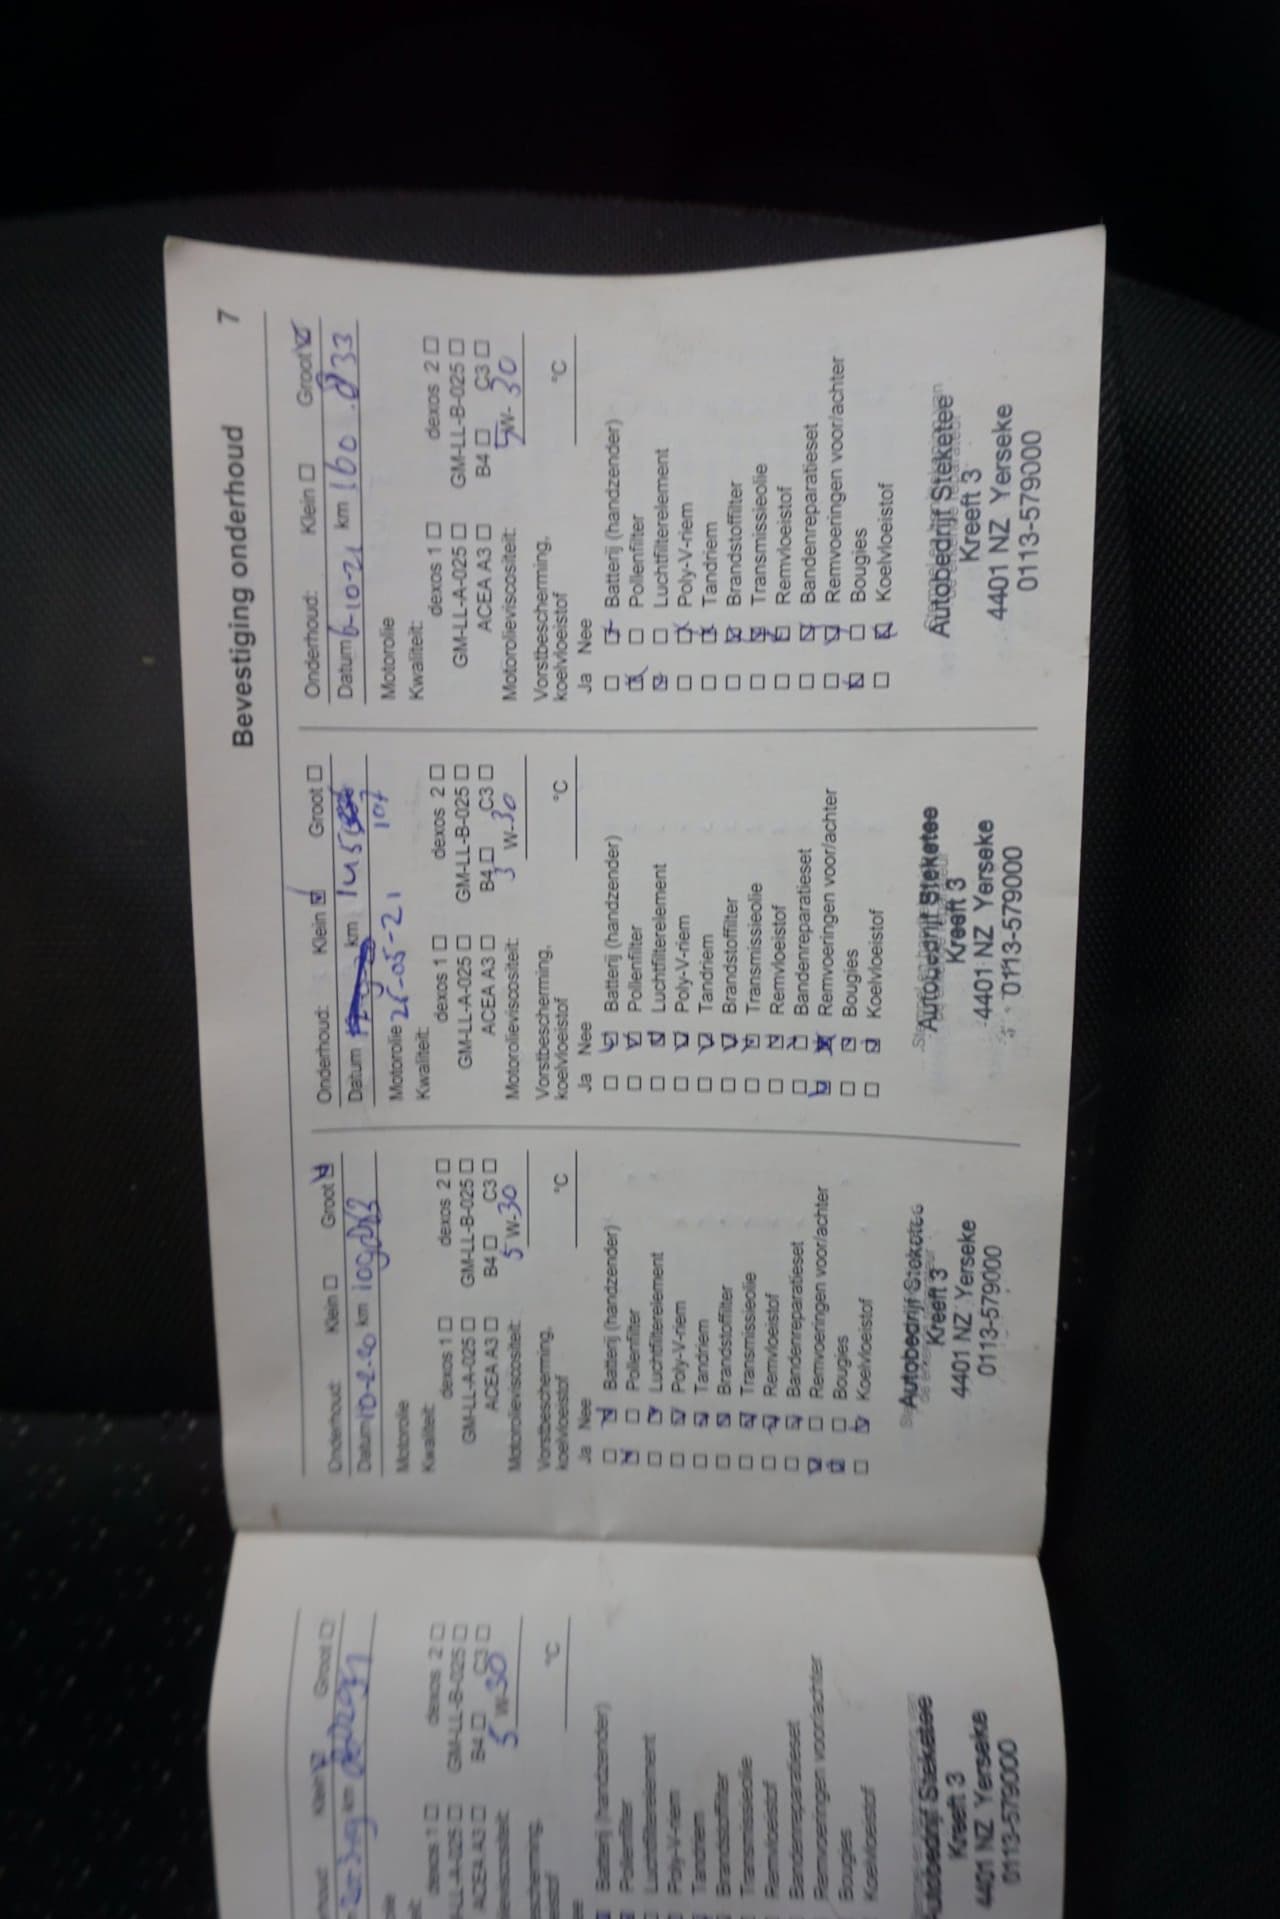 Bevestiging onderhoud 7
Onderhoud: Klein Groot
Datum 10-2-20 km
Motorolie
Kwaliteit: dexos 1 dexos 2
GM-LL-A-025 GM-LL-B-025
ACEA A3 B4 C3
Motorolieviscositeit: 5 W-30
Vorstbescherming,
koelvloeistof °C
Ja Nee
Batterij (handzender)
Pollenfilter
Luchtfilterelement
Poly-V-riem
Tandriem
Brandstoffilter
Transmissieolie
Remvloeistof
Bandenreparatieset
Remvoeringen voor/achter
Bougies
Koelvloeistof
Autobedrijf Steketee
Kreeft 3
4401 NZ Yerseke
0113-579000
Onderhoud: Klein Groot
Datum km 145
107
Motorolie 26-05-21
Kwaliteit: dexos 1 dexos 2
GM-LL-A-025 GM-LL-B-025
ACEA A3 B4 C3
Motorolieviscositeit: W-30
Vorstbescherming,
koelvloeistof °C
Ja Nee
Batterij (handzender)
Pollenfilter
Luchtfilterelement
Poly-V-riem
Tandriem
Brandstoffilter
Transmissieolie
Remvloeistof
Bandenreparatieset
Remvoeringen voor/achter
Bougies
Koelvloeistof
Autobedrijf Steketee
Kreeft 3
4401 NZ Yerseke
0113-579000
Onderhoud: Klein Groot
Datum 6-10-21 km 160.833
Motorolie
Kwaliteit: dexos 1 dexos 2
GM-LL-A-025 GM-LL-B-025
ACEA A3 B4 C3
Motorolieviscositeit: 5W-30
Vorstbescherming,
koelvloeistof °C
Ja Nee
Batterij (handzender)
Pollenfilter
Luchtfilterelement
Poly-V-riem
Tandriem
Brandstoffilter
Transmissieolie
Remvloeistof
Bandenreparatieset
Remvoeringen voor/achter
Bougies
Koelvloeistof
Autobedrijf Steketee
Kreeft 3
4401 NZ Yerseke
0113-579000
Klein Groot
km
dexos 1 dexos 2
GM-LL-B-025
ACEA A3 B4 C3
5 W-30
°C
Batterij (handzender)
Pollenfilter
Luchtfilterelement
Poly-V-riem
Tandriem
Brandstoffilter
Transmissieolie
Remvloeistof
Bandenreparatieset
Remvoeringen voor/achter
Bougies
Koelvloeistof
Autobedrijf Steketee
Kreeft 3
4401 NZ Yerseke
0113-579000